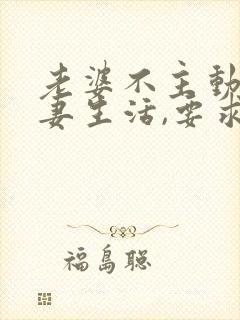 老婆不主动
妻生活,要求
福島聡